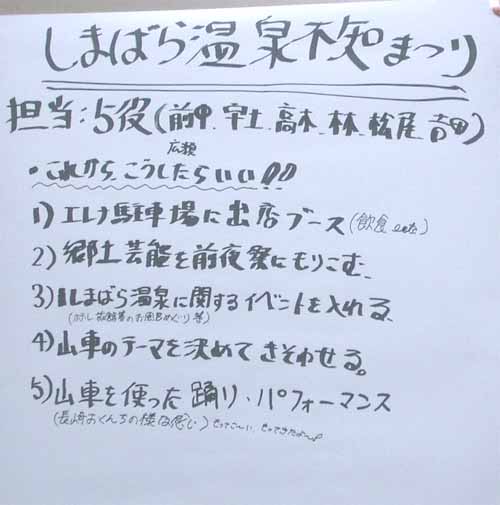 しまばら温泉不知まつり
担当:5役(前甲.宇土.高木.林.松尾.吉田)
広瀬
・これから、こうしたらいい!!
1)エレナ駐車場に出店ブース(飲食 etc)
2)郷土芸能を前夜祭にもりこむ、
3)しまばら温泉に関するイベントを入れる、
(ホテル 旅館等のお風呂めぐり等)
4)山車のテーマを決めてきそわせる。
5)山車を使った踊り・パフォーマンス
(長崎おくんちの様な感じ)もってこーい、もってきたよ〜